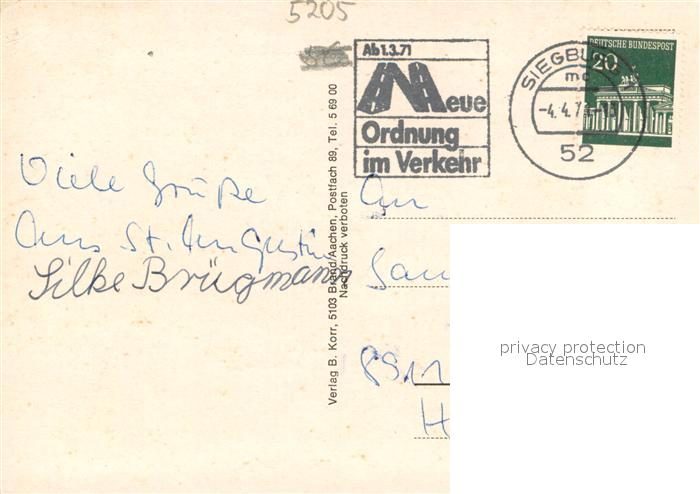 5205
Ab 1.3.71
Neue
Ordnung
im Verkehr
SIEGBURG 1
mc
-4.4.7
52
DEUTSCHE BUNDESPOST
20
Viele Grüße
Aus St. Augustin
Silke Brügmann
Verlag B. Korr, 5103 Brand/Aachen, Postfach 89, Tel. 5 69 00
Nachdruck verboten
An
8911
H
privacy protection
Datenschutz